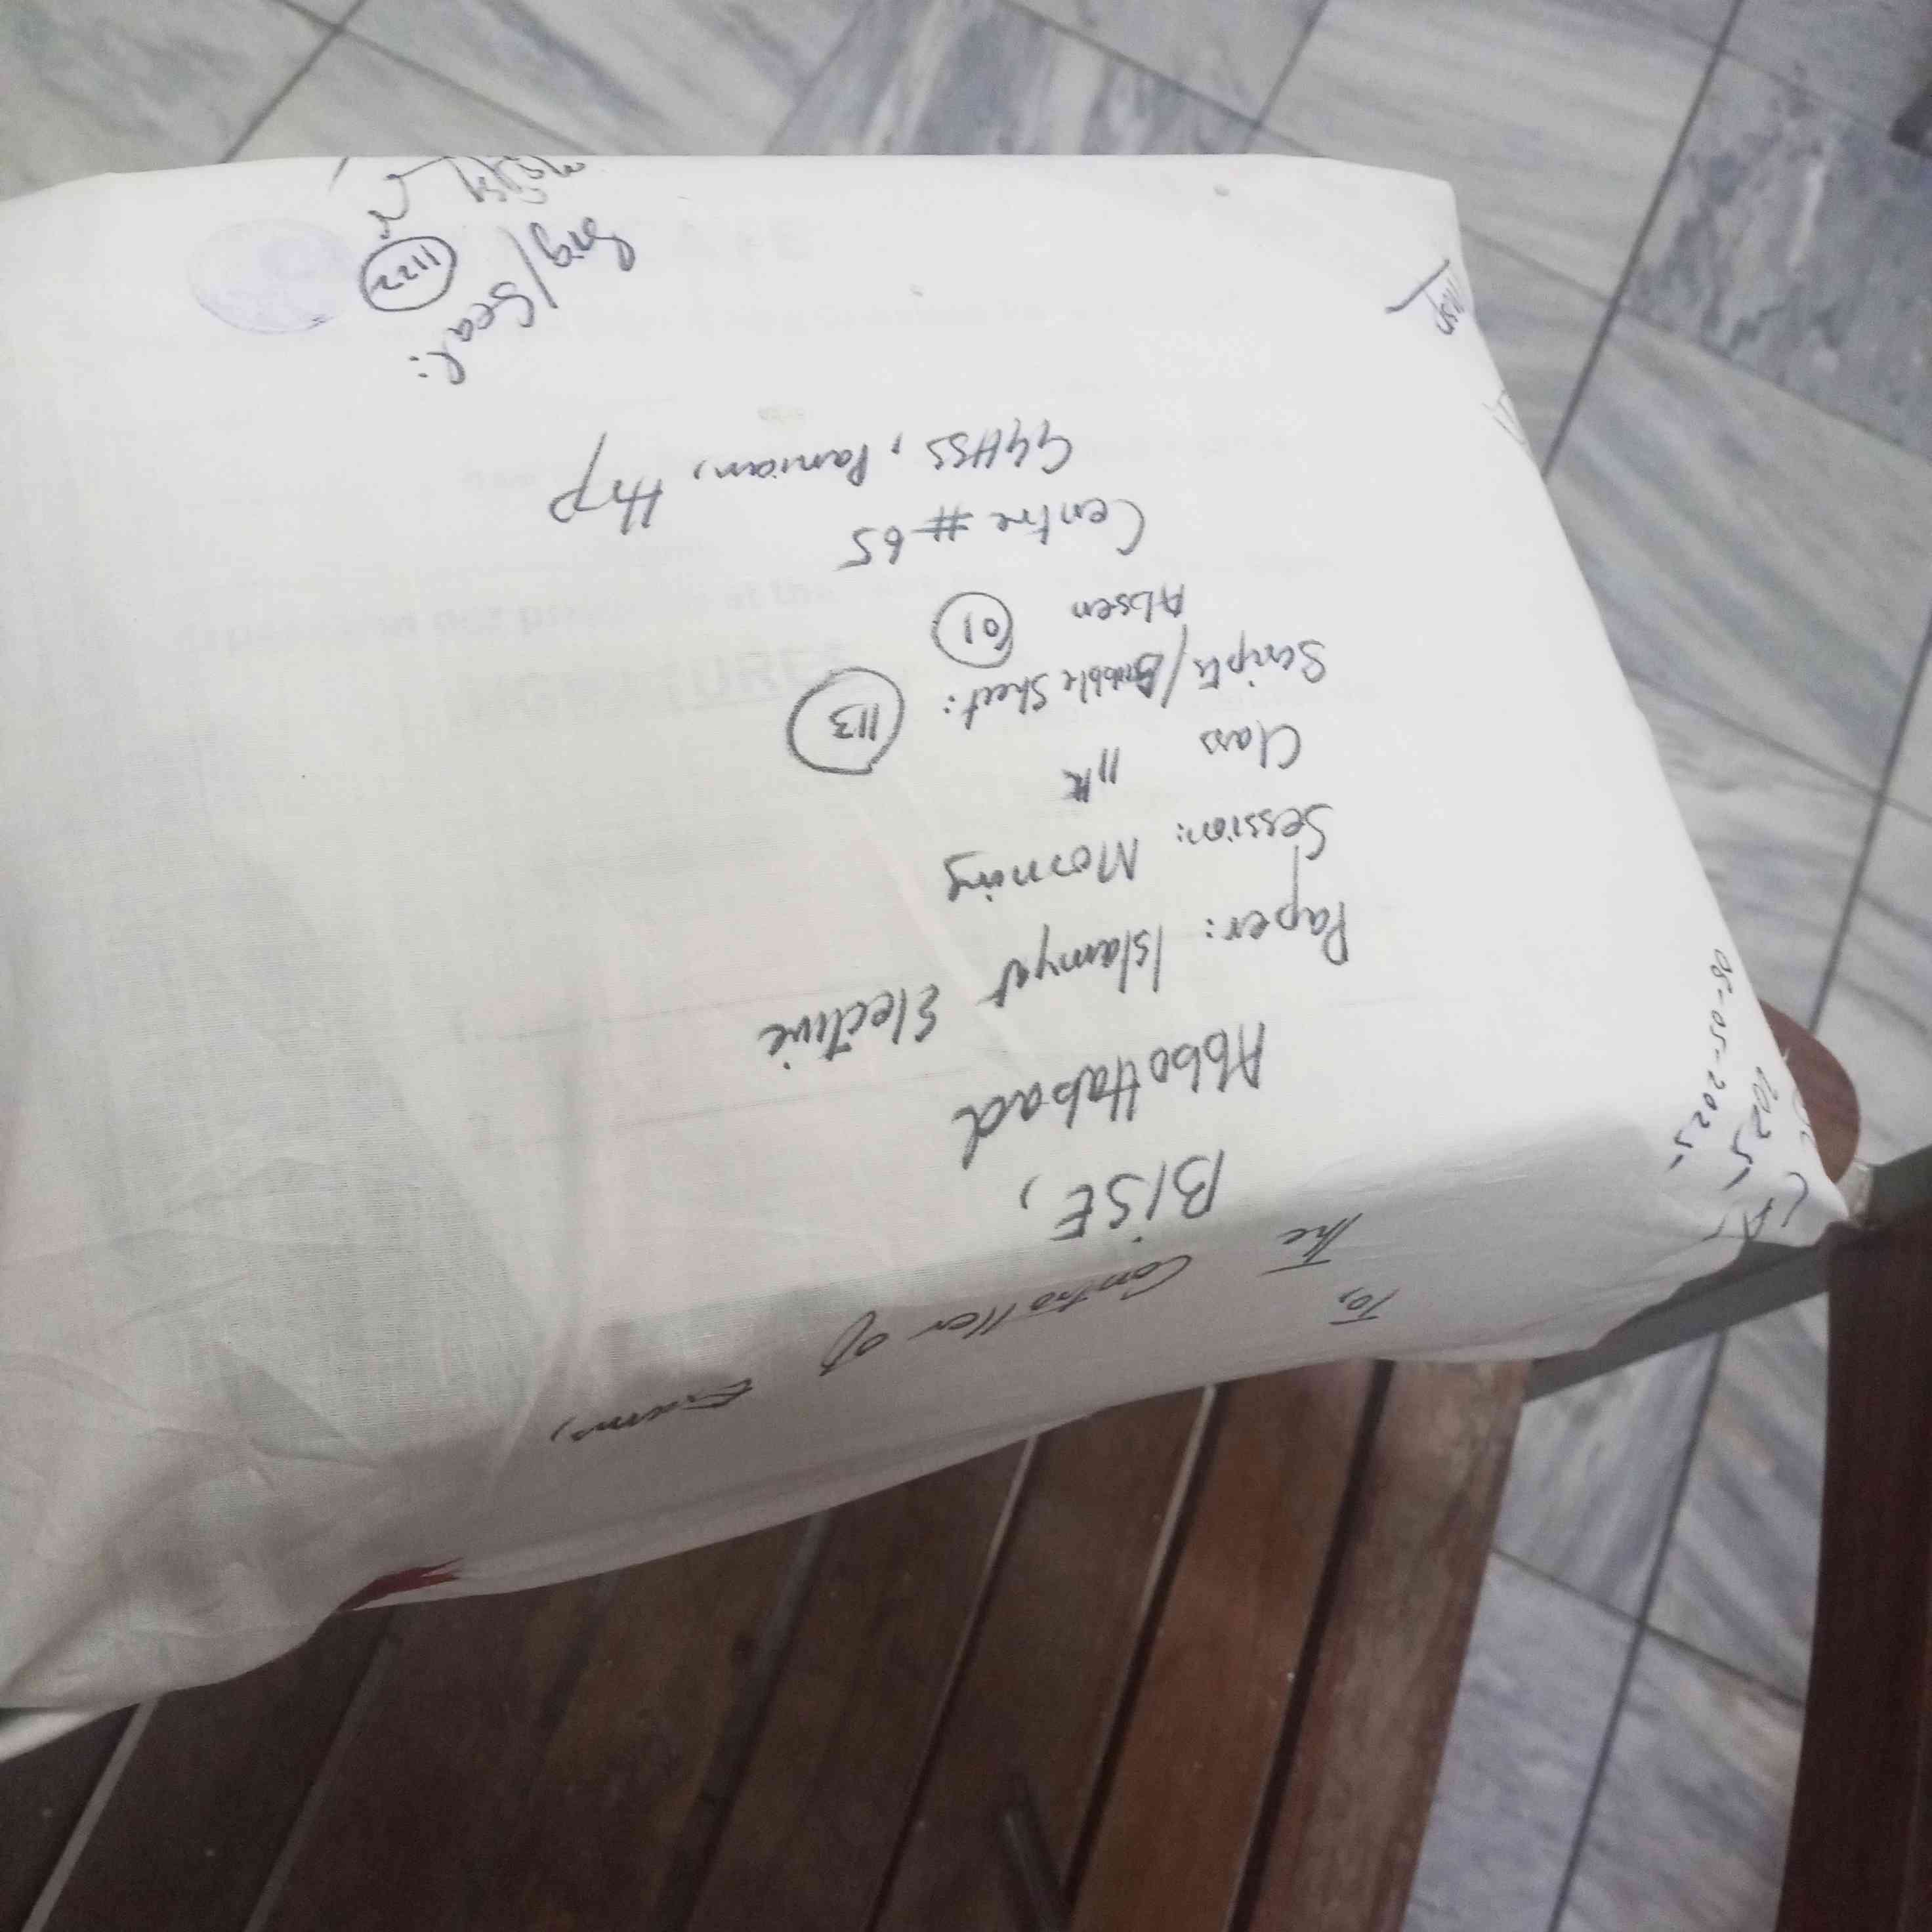 To,
The Controller of Exams,
BISE,
Abbottabad
Paper: Islamyat Elective
Session: Morning
Class 11th
Scripts/Bubble Sheet: 113
Absen 01
Centre # 65
GGHSS, Panian, Hrp
Sig/Seal:
1122
2025
08-05-2025